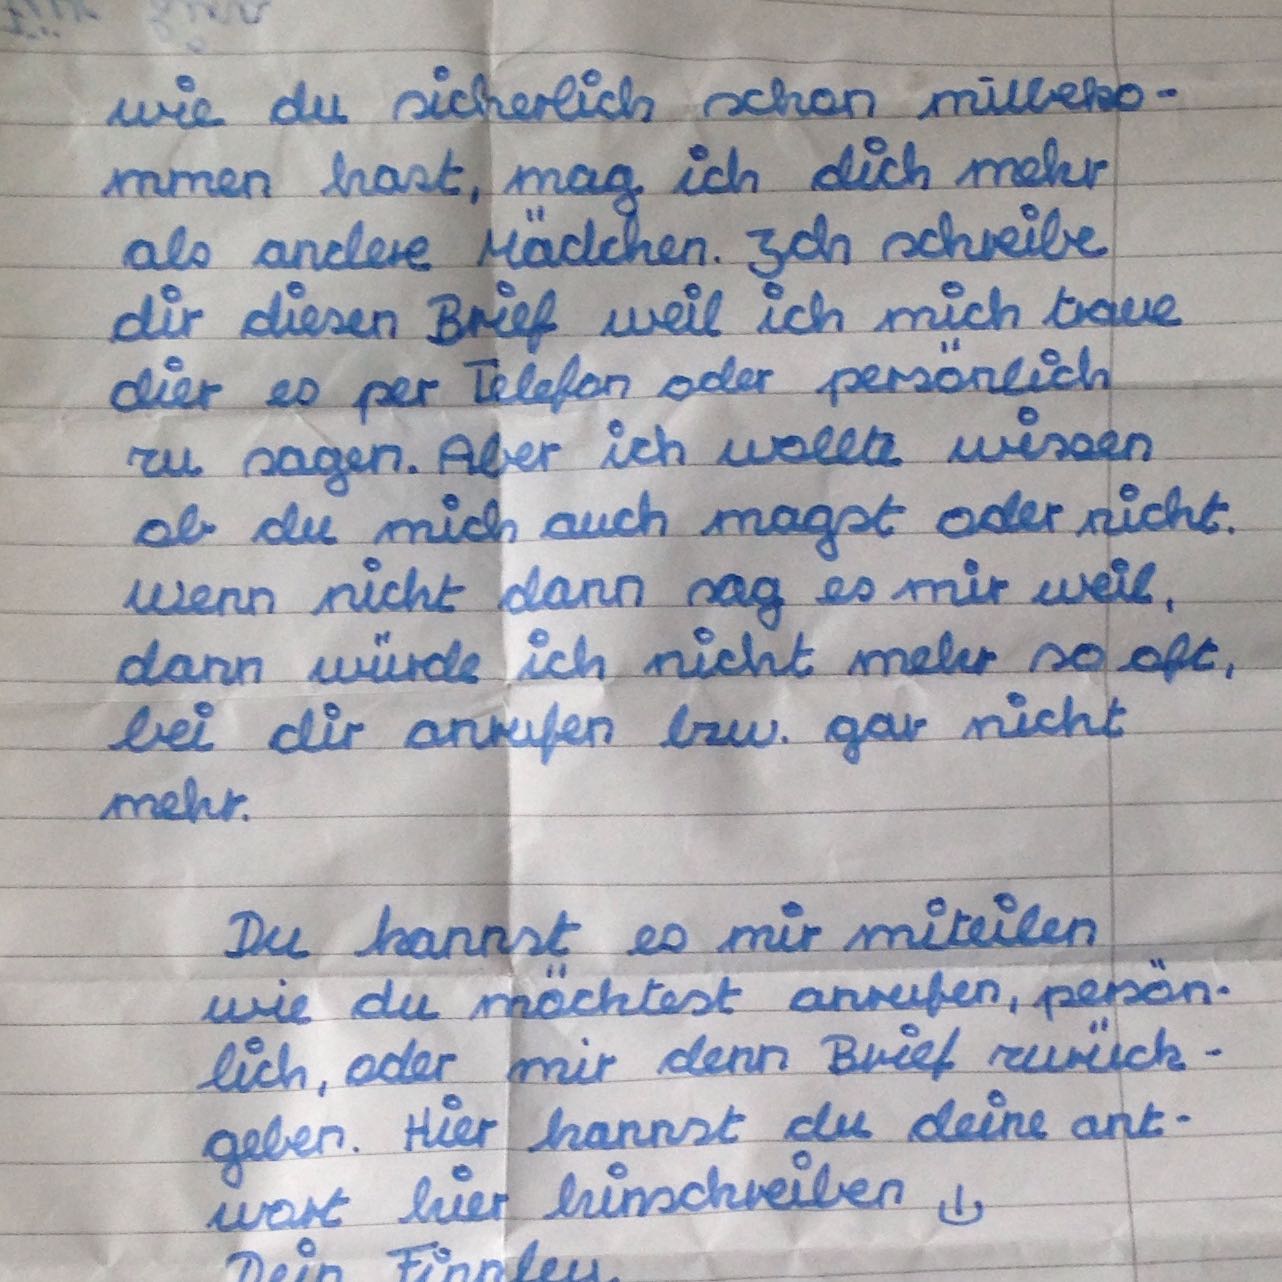 wie du sicherlich schon mitbeko-
mmen hast, mag ich dich mehr
als andere Mädchen. Ich schreibe
dir diesen Brief weil ich mich traue
dier es per Telefon oder persönlich
zu sagen. Aber ich wollte wissen
ob du mich auch magst oder nicht.
Wenn nicht dann sag es mir weil,
dann würde ich nicht mehr so oft,
bei dir anrufen bzw. gar nicht
mehr.
Du kannst es mir miteilen
wie du möchtest anrufen, persön-
lich, oder mir denn Brief zurück-
geben. Hier kannst du deine ant-
wort hier hinschreiben
Dein Finnley